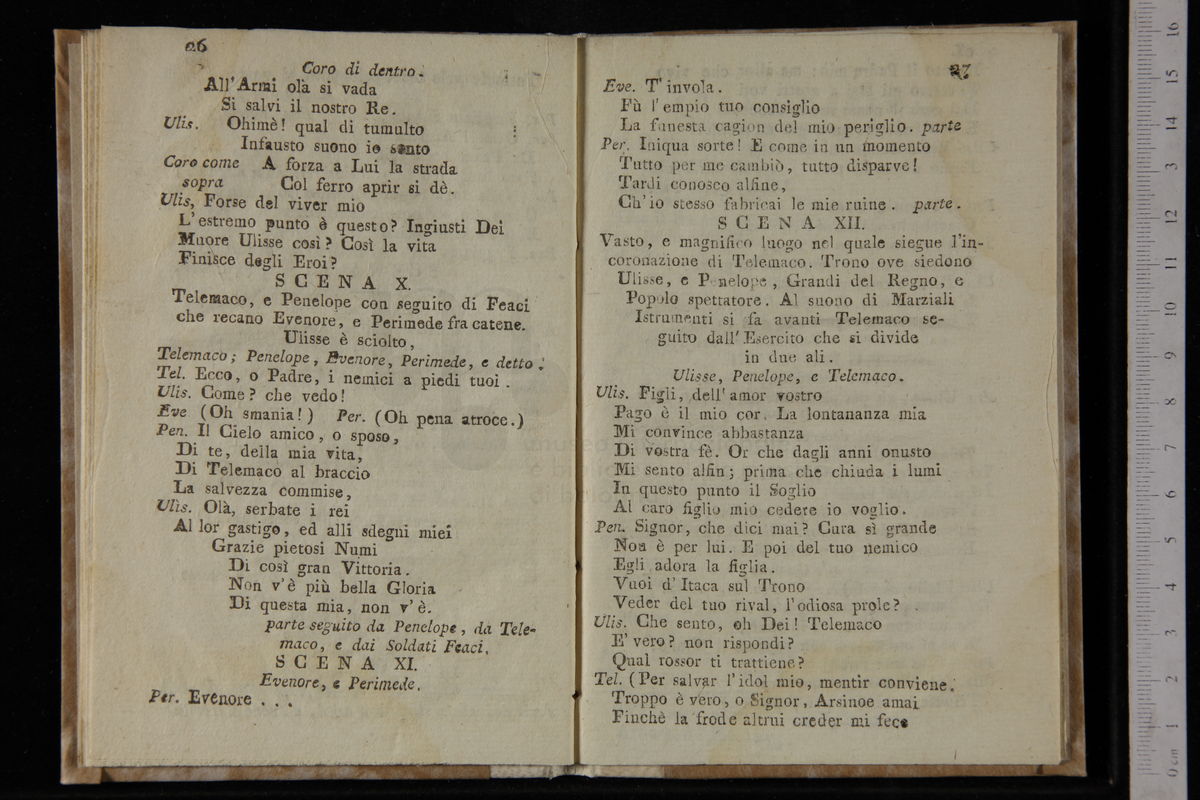 26
Coro di dentro.
All' Armi olà si vada
Si salvi il nostro Re.
Ulis. Ohimè! qual di tumulto
Infausto suono io sento
Coro come A forza a Lui la strada
sopra Col ferro aprir si dè.
Ulis, Forse del viver mio
L' estremo punto è questo? Ingiusti Dei
Muore Ulisse così? Così la vita
Finisce degli Eroi?
SCENA X.
Telemaco, e Penelope con seguito di Feaci
che recano Evenore, e Perimede fra catene.
Ulisse è sciolto,
Telemaco; Penelope, Evenore, Perimede, e detto.
Tel. Ecco, o Padre, i nemici a piedi tuoi.
Ulis. Come? che vedo!
Eve (Oh smania!) Per. (Oh pena atroce.)
Pen. Il Cielo amico, o sposo,
Di te, della mia vita,
Di Telemaco al braccio
La salvezza commise,
Ulis. Olà, serbate i rei
Al lor gastigo, ed alli sdegni miei
Grazie pietosi Numi
Di così gran Vittoria.
Non v'è più bella Gloria
Di questa mia, non v'è.
parte seguito da Penelope, da Tele-
maco, e dai Soldati Feaci.
SCENA XI.
Evenore, e Perimede.
Per. Evenore . . .
27
Eve. T' invola.
Fù l' empio tuo consiglio
La funesta cagion del mio periglio. parte
Per. Iniqua sorte! E come in un momento
Tutto per me cambiò, tutto disparve!
Tardi conosco alfine,
Ch' io stesso fabricai le mie ruine. parte.
SCENA XII.
Vasto, e magnifico luogo nel quale siegue l'in-
coronazione di Telemaco. Trono ove siedono
Ulisse, e Penelope, Grandi del Regno, e
Popolo spettatore. Al suono di Marziali
Istrumenti si fa avanti Telemaco se-
guito dall' Esercito che si divide
in due ali.
Ulisse, Penelope, e Telemaco.
Ulis. Figli, dell' amor vostro
Pago è il mio cor. La lontananza mia
Mi convince abbastanza
Di vostra fè. Or che dagli anni onusto
Mi sento alfin; prima che chiuda i lumi
In questo punto il Soglio
Al caro figlio mio cedere io voglio.
Pen. Signor, che dici mai? Cura sì grande
Non è per lui. E poi del tuo nemico
Egli adora la figlia.
Vuoi d' Itaca sul Trono
Veder del tuo rival, l'odiosa prole?
Ulis. Che sento, oh Dei! Telemaco
E' vero? non rispondi?
Qual rossor ti trattiene?
Tel. (Per salvar l'idol mio, mentir conviene.
Troppo è vero, o Signor, Arsinoe amai
Finchè la frode altrui creder mi fece